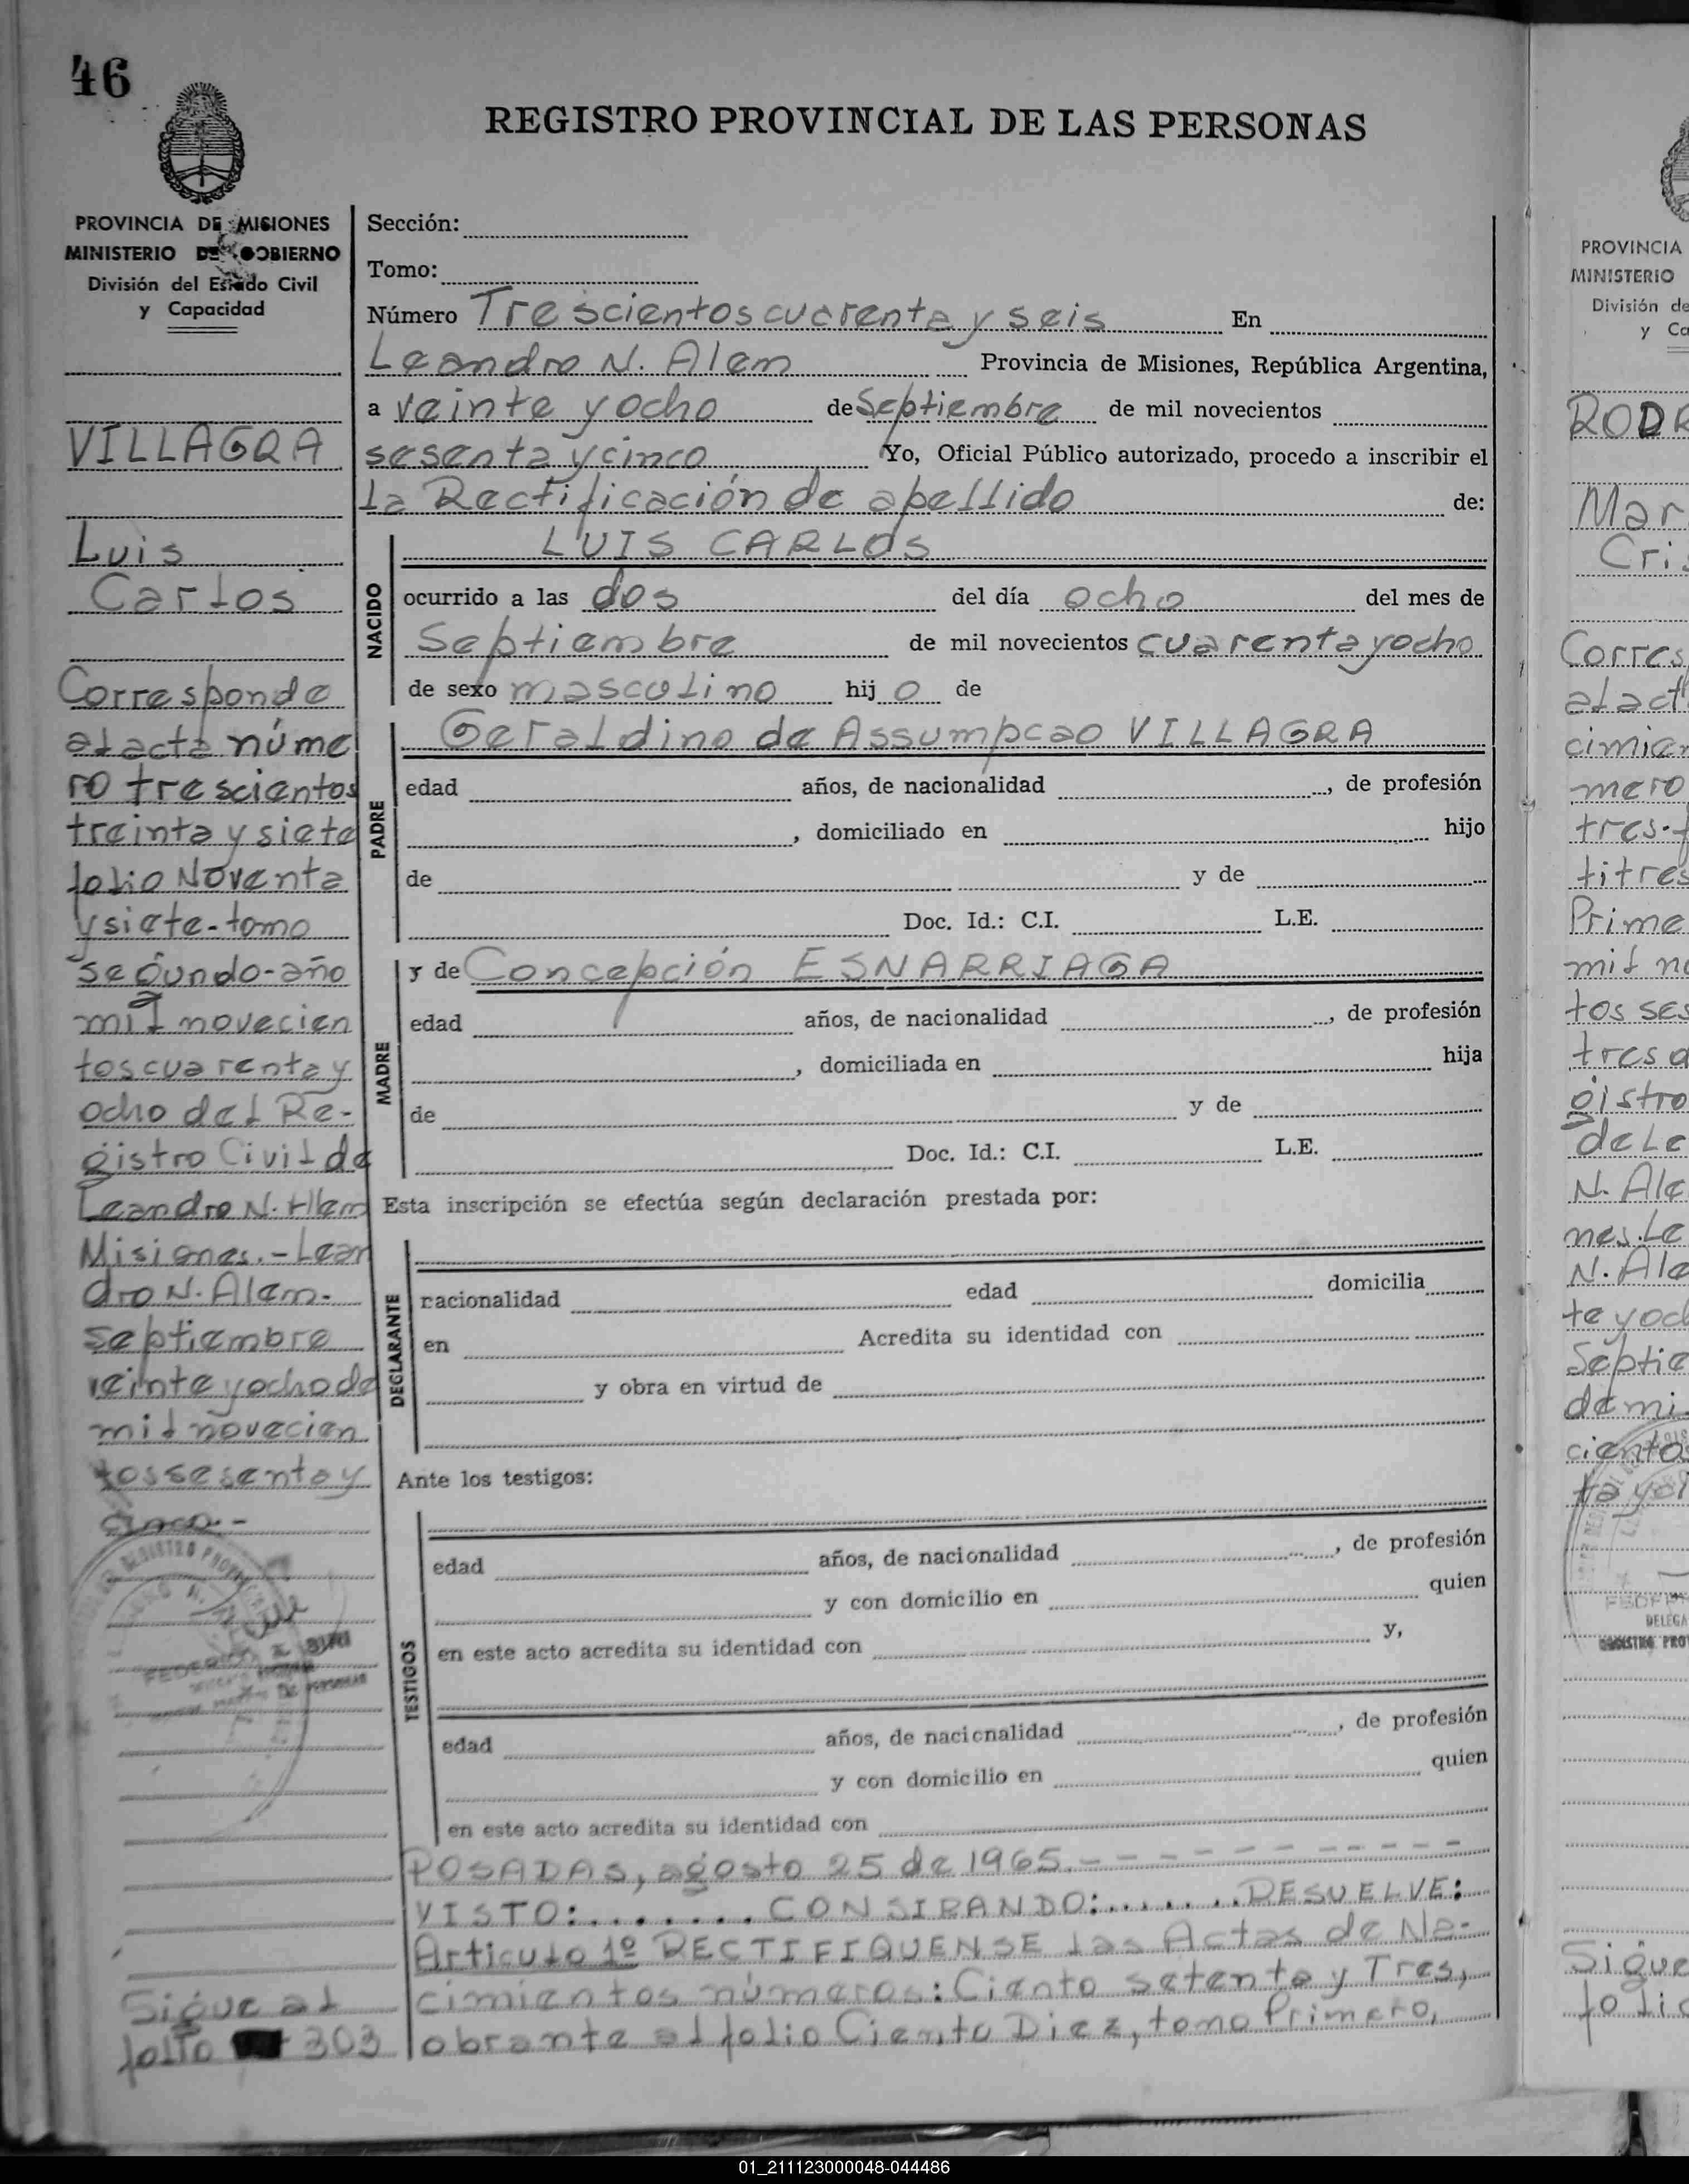 46
REGISTRO PROVINCIAL DE LAS PERSONAS
PROVINCIA DE MISIONES
MINISTERIO DE GOBIERNO
División del Estado Civil
y Capacidad
VILLAGRA
Luis
Carlos
Corresponde
al acta núme
ro trescientos
treinta y siete
folio Noventa
y siete-tomo
segundo-año
mil novecien
tos cuarenta y
ocho del Re-
gistro Civil de
Leandro N. Alem
Misiones.-Lean
dro N. Alem.
Septiembre
veinte y ocho de
mil novecien
tos sesenta y
cinco.-
Sigue al
folio 303
Sección:
Tomo:
Número Trescientos cuarenta y seis En
Leandro N. Alem Provincia de Misiones, República Argentina,
a veinte y ocho de Septiembre de mil novecientos
sesenta y cinco Yo, Oficial Público autorizado, procedo a inscribir el
la Rectificación de apellido de:
LUIS CARLOS
NACIDO
ocurrido a las dos del día ocho del mes de
Septiembre de mil novecientos cuarenta y ocho
de sexo masculino hijo de
PADRE
Geraldino de Assumpcao VILLAGRA
edad años, de nacionalidad , de profesión
, domiciliado en hijo
de y de
Doc. Id.: C.I. L.E.
MADRE
y de Concepción ESNARRIAGA
edad años, de nacionalidad , de profesión
, domiciliada en hija
de y de
Doc. Id.: C.I. L.E.
Esta inscripción se efectúa según declaración prestada por:
DECLARANTE
nacionalidad edad domicilia
en Acredita su identidad con
y obra en virtud de
Ante los testigos:
TESTIGOS
edad años, de nacionalidad , de profesión
y con domicilio en quien
en este acto acredita su identidad con y,
edad años, de nacionalidad , de profesión
y con domicilio en quien
en este acto acredita su identidad con
POSADAS, agosto 25 de 1965.- - - - - - - - - -
VISTO:........CONSIRANDO:.......RESUELVE:
Articulo 1º RECTIFIQUENSE las Actas de Na-
cimientos números: Ciento setenta y Tres,
obrante al folio Ciento Diez, tomo Primero,
PROVINCIA
MINISTERIO
División de
y Ca
RODR
Mar
Cris
Corres
al act
cimien
mero
tres-f
titres
Prime
mil no
tos ses
tres d
gistro
de Le
N. Ale
nes.Le
N. Ale
te y och
Septie
de mi
cientos
Sigue
folio
01_211123000048-044486